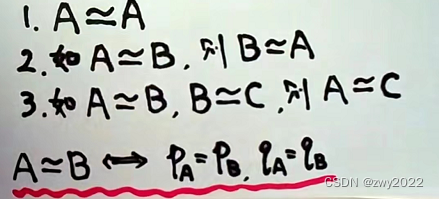 1. A≃A
2. 如 A≃B, 则 B≃A
3. 如 A≃B, B≃C, 则 A≃C
A≃B ⟺ p_A=p_B, q_A=q_B
CSDN @zwy2022